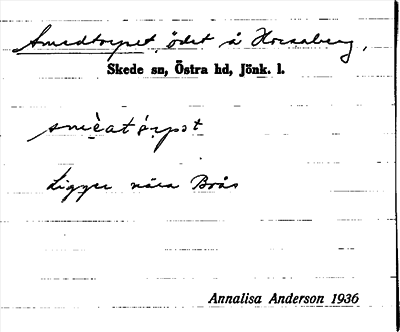 Smedtorpet, ödet å Horsaberg,
Skede sn, Östra hd, Jönk. l.
smèatórpət
Ligger nära Brås
Annalisa Anderson 1936